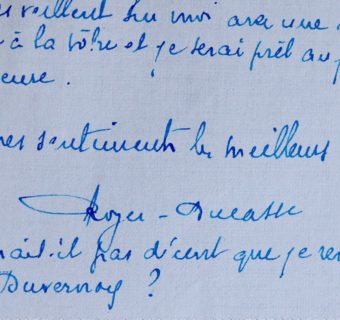 veillent sur moi avec une
à la vôtre et je serai prêt au
euse.
es sentiments les meilleurs
Roger-Ducasse
ait-il pas décent que je re
Duvernoy ?